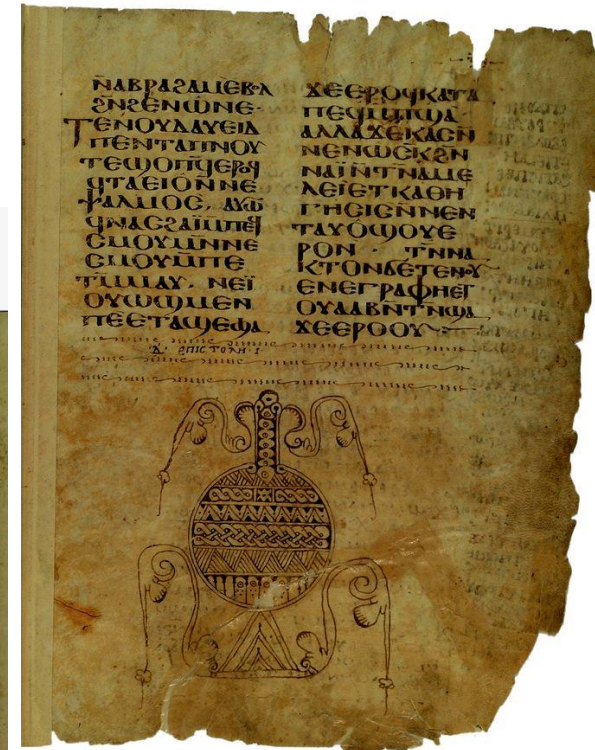 ⲚⲀⲂⲢⲀϨⲀⲘⲈⲂⲞⲖ
ϨⲚϨⲈⲚⲰⲚⲈ·
ⲦⲈⲚⲞⲨⲆⲀⲨⲈⲒⲆ
ⲠⲈⲚⲦⲀⲠⲚⲞⲨ
ⲦⲈϢⲞⲠϤⲈⲢⲞϤ
ϤⲦⲀⲈⲒⲞⲚⲚⲈ
ⲮⲀⲖⲘⲞⲤ, ⲀⲨⲰ
ϤⲚⲀⲤϨⲀⲒⲘⲠⲈϤ
ⲤⲘⲞⲨⲘⲚⲚⲈ
ⲤⲘⲞⲨⲘⲠⲈ
ⲦⲘⲘⲀⲨ· ⲚⲈⲒ
ⲞⲨⲰϢⲘⲈⲚ
ⲠⲈⲈⲦⲀϢⲈϢⲀ
ϪⲈⲈⲢⲞϤⲔⲀⲦⲀ
ⲠⲈϤⲘⲠϢⲀ·
ⲀⲖⲖⲀϪⲈⲔⲀⲤⲚ
ⲚⲈⲚⲰⲤⲔϨⲚ
ⲚⲀⲒⲚⲦⲚⲀⲘⲈ
ⲖⲈⲒⲈⲦⲔⲀⲐⲎ
ⲄⲎⲤⲒⲤⲚⲚⲈⲚ
ⲦⲀⲨⲞϢⲞⲨⲈ
ⲢⲞⲚ · ⲦⲚⲚⲀ
ⲔⲦⲞⲚϬⲈⲦⲈⲚⲞⲨ
ⲈⲚⲈⲄⲢⲀⲪⲎⲈⲦ
ⲞⲨⲀⲀⲂⲚⲦⲚϢⲀ
ϪⲈⲈⲢⲞⲞⲨ